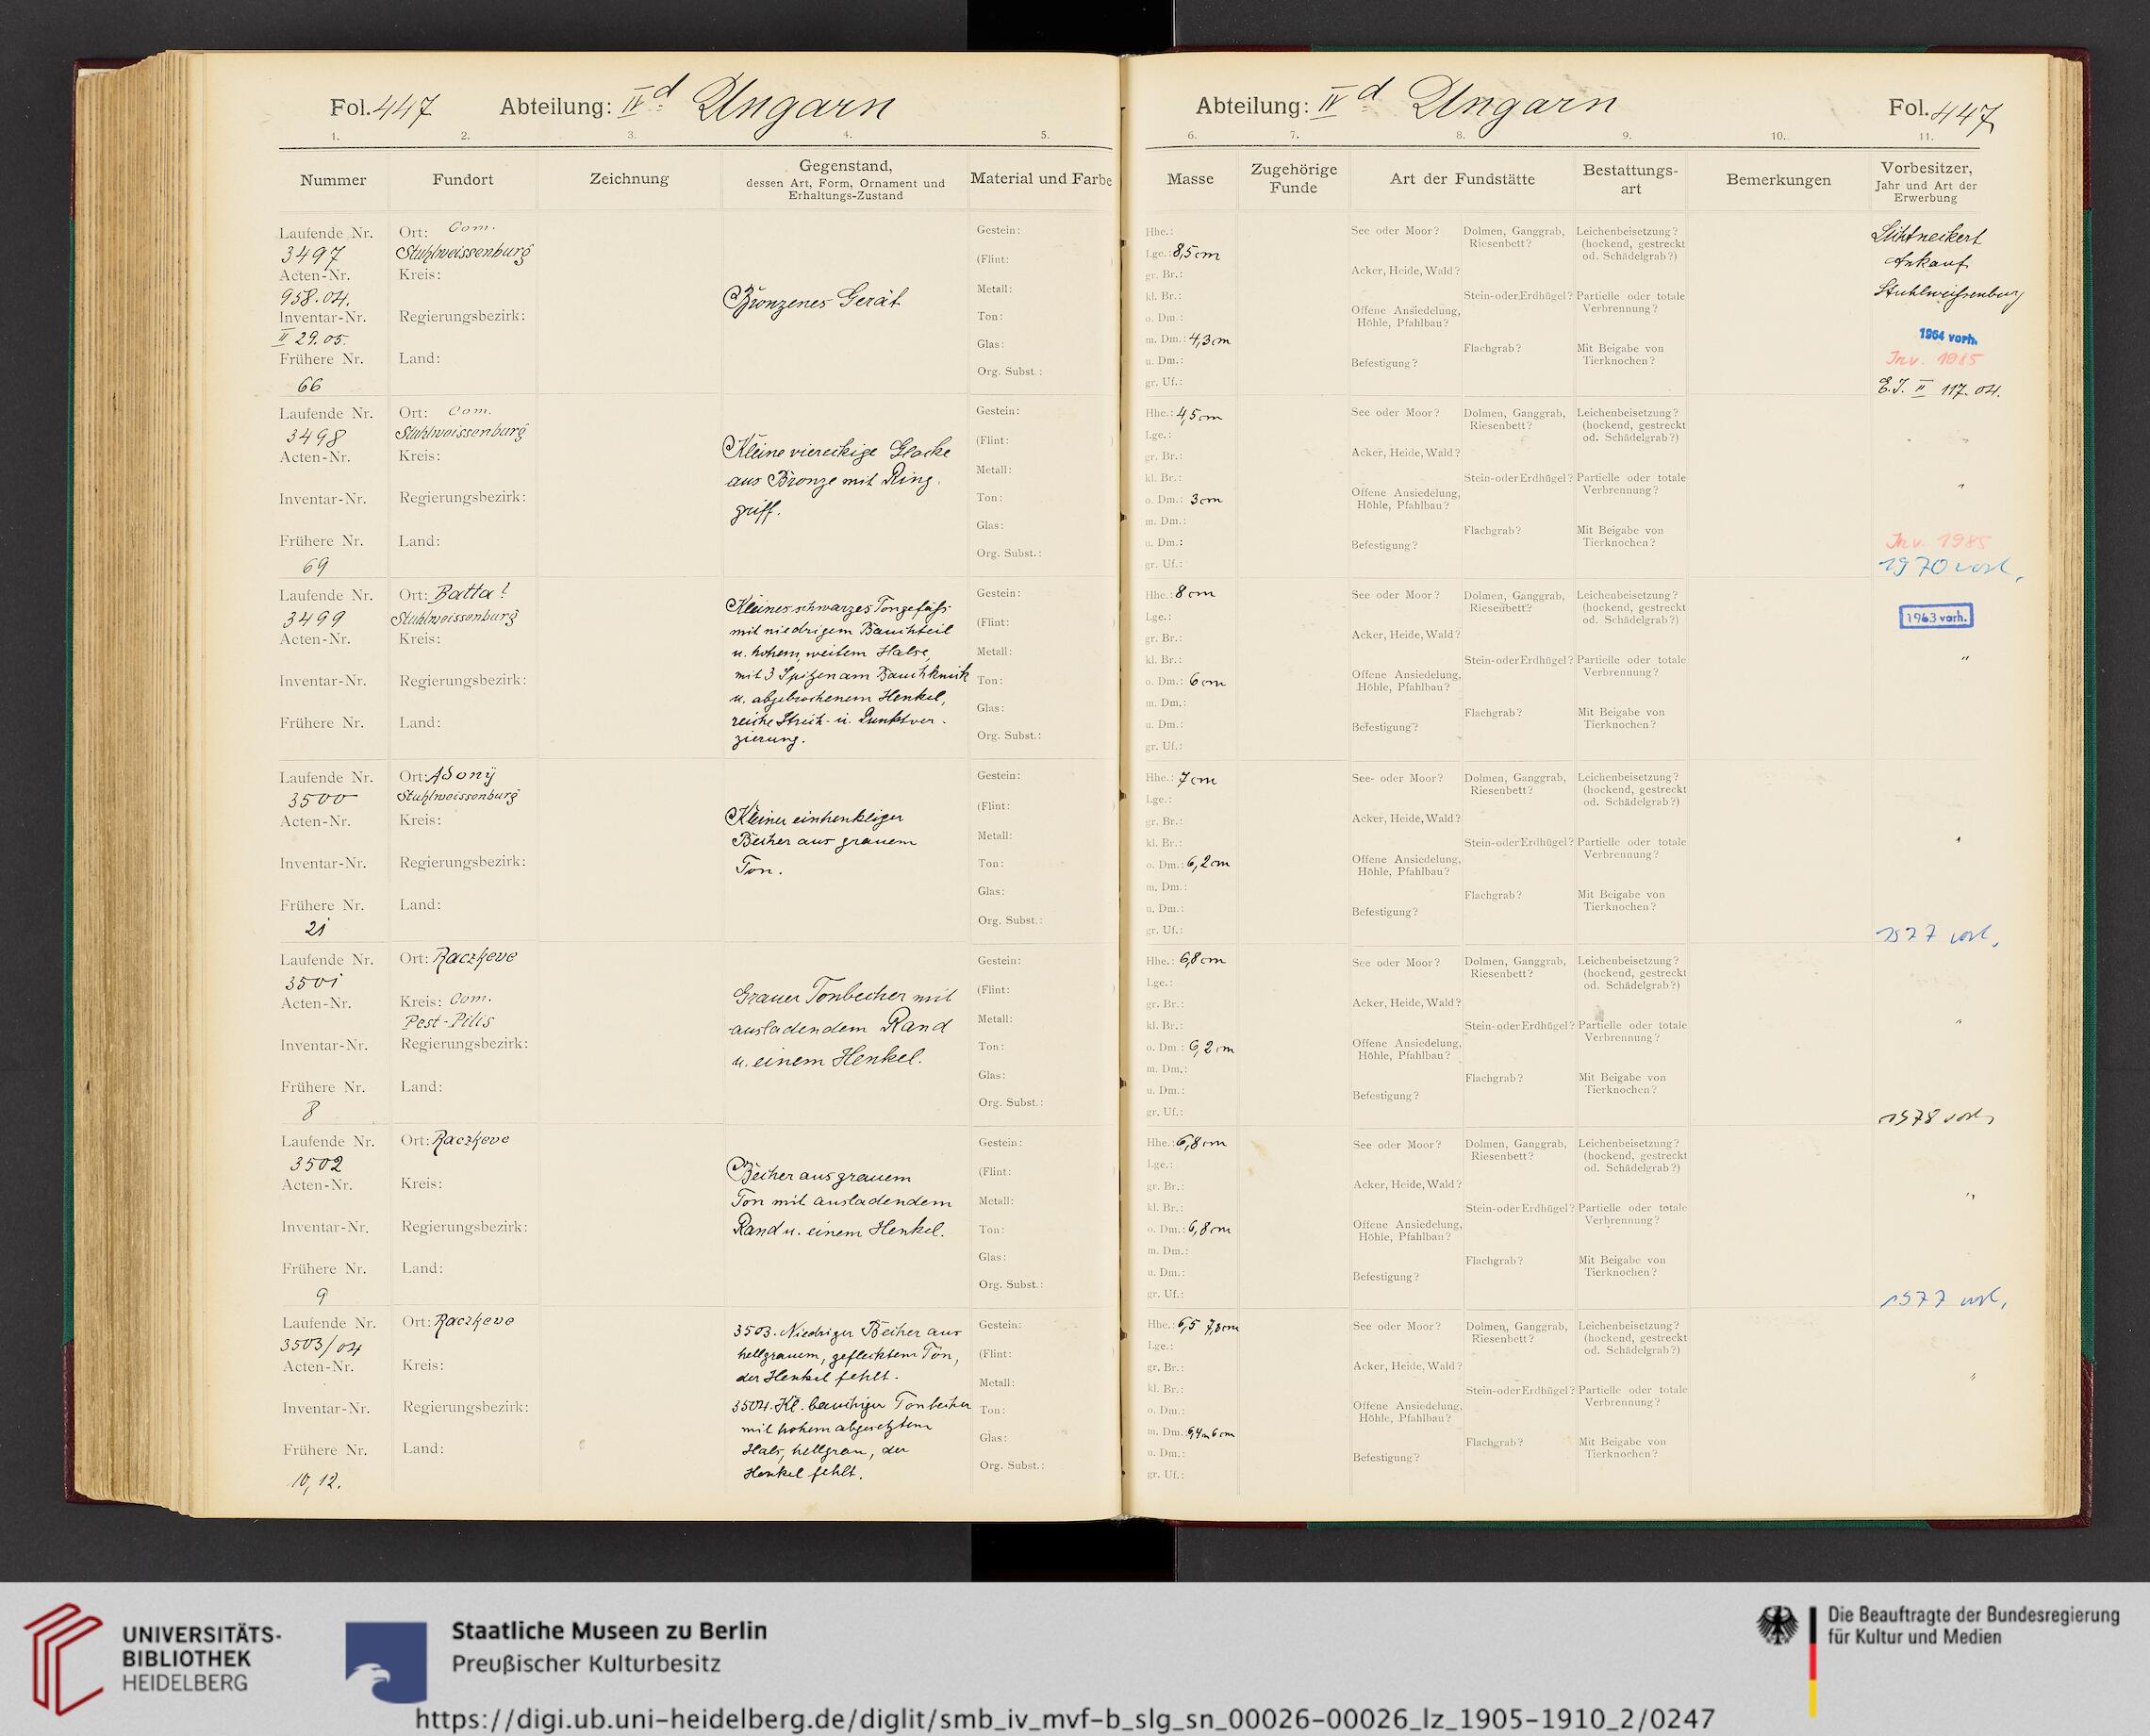 Fol. 447 Abteilung: IVd Ungarn
1. 2. 3. 4. 5.
Nummer Fundort Zeichnung Gegenstand, dessen Art, Form, Ornament und Erhaltungs-Zustand Material und Farbe
Laufende Nr. 3497
Acten-Nr. 958.04.
Inventar-Nr. II 29.05.
Frühere Nr. 66
Ort: Com. Stuhlweissenburg
Kreis:
Regierungsbezirk:
Land:
Bronzenes Gerät
Gestein:
(Flint:
Metall:
Ton:
Glas:
Org. Subst.:
Laufende Nr. 3498
Acten-Nr.
Inventar-Nr.
Frühere Nr. 69
Ort: Com. Stuhlweissenburg
Kreis:
Regierungsbezirk:
Land:
Kleine viereckige Glocke
aus Bronze mit Ring-
griff.
Gestein:
(Flint:
Metall:
Ton:
Glas:
Org. Subst.:
Laufende Nr. 3499
Acten-Nr.
Inventar-Nr.
Frühere Nr.
Ort: Batta?
Stuhlweissenburg
Kreis:
Regierungsbezirk:
Land:
Kleines schwarzes Tongefäß
mit niedrigem Bauchteil
u. hohem, weitem Halse,
mit 3 Spitzen am Bauchknick
u. abgebrochenem Henkel,
reiche Strich- u. Punktver-
zierung.
Gestein:
(Flint:
Metall:
Ton:
Glas:
Org. Subst.:
Laufende Nr. 3500
Acten-Nr.
Inventar-Nr.
Frühere Nr. 21
Ort: Adony
Stuhlweissenburg
Kreis:
Regierungsbezirk:
Land:
Kleiner einhenkliger
Becher aus grauem
Ton.
Gestein:
(Flint:
Metall:
Ton:
Glas:
Org. Subst.:
Laufende Nr. 3501
Acten-Nr.
Inventar-Nr.
Frühere Nr. 8
Ort: Raczkeve
Kreis: Com.
Pest-Pilis
Regierungsbezirk:
Land:
Grauer Tonbecher mit
ausladendem Rand
u. einem Henkel.
Gestein:
(Flint:
Metall:
Ton:
Glas:
Org. Subst.:
Laufende Nr. 3502
Acten-Nr.
Inventar-Nr.
Frühere Nr. 9
Ort: Raczkeve
Kreis:
Regierungsbezirk:
Land:
Becher aus grauem
Ton mit ausladendem
Rand u. einem Henkel.
Gestein:
(Flint:
Metall:
Ton:
Glas:
Org. Subst.:
Laufende Nr. 3503/04
Acten-Nr.
Inventar-Nr.
Frühere Nr. 10, 12.
Ort: Raczkeve
Kreis:
Regierungsbezirk:
Land:
3503. Niedriger Becher aus
hellgrauem, geflecktem Ton,
der Henkel fehlt.
3504. Kl. bauchiger Tonbecher
mit hohem abgesetztem
Hals, hellgrau, der
Henkel fehlt.
Gestein:
(Flint:
Metall:
Ton:
Glas:
Org. Subst.:
Abteilung: IVd Ungarn Fol. 447
6. 7. 8. 9. 10. 11.
Masse Zugehörige Funde Art der Fundstätte Bestattungs-art Bemerkungen Vorbesitzer, Jahr und Art der Erwerbung
Hhe.:
Lge.: 8,5 cm
gr. Br.:
kl. Br.:
o. Dm.:
m. Dm.: 4,3 cm
u. Dm.:
gr. Uf.:
See oder Moor?
Acker, Heide, Wald?
Offene Ansiedelung, Höhle, Pfahlbau?
Befestigung?
Dolmen, Ganggrab, Riesenbett?
Stein- oder Erdhügel?
Flachgrab?
Leichenbeisetzung? (hockend, gestreckt od. Schädelgrab?)
Partielle oder totale Verbrennung?
Mit Beigabe von Tierknochen?
Lichtneckert
Ankauf
Stuhlweißenburg
1964 vorh.
Inv. 1985
E.J. II 117.04.
Hhe.: 4,5 cm
Lge.:
gr. Br.:
kl. Br.:
o. Dm.: 3 cm
m. Dm.:
u. Dm.:
gr. Uf.:
See oder Moor?
Acker, Heide, Wald?
Offene Ansiedelung, Höhle, Pfahlbau?
Befestigung?
Dolmen, Ganggrab, Riesenbett?
Stein- oder Erdhügel?
Flachgrab?
Leichenbeisetzung? (hockend, gestreckt od. Schädelgrab?)
Partielle oder totale Verbrennung?
Mit Beigabe von Tierknochen?
"
Inv. 1985
1970 vorh.
Hhe.: 8 cm
Lge.:
gr. Br.:
kl. Br.:
o. Dm.: 6 cm
m. Dm.:
u. Dm.:
gr. Uf.:
See oder Moor?
Acker, Heide, Wald?
Offene Ansiedelung, Höhle, Pfahlbau?
Befestigung?
Dolmen, Ganggrab, Riesenbett?
Stein- oder Erdhügel?
Flachgrab?
Leichenbeisetzung? (hockend, gestreckt od. Schädelgrab?)
Partielle oder totale Verbrennung?
Mit Beigabe von Tierknochen?
1963 vorh.
"
Hhe.: 7 cm
Lge.:
gr. Br.:
kl. Br.:
o. Dm.: 6,2 cm
m. Dm.:
u. Dm.:
gr. Uf.:
See- oder Moor?
Acker, Heide, Wald?
Offene Ansiedelung, Höhle, Pfahlbau?
Befestigung?
Dolmen, Ganggrab, Riesenbett?
Stein- oder Erdhügel?
Flachgrab?
Leichenbeisetzung? (hockend, gestreckt od. Schädelgrab?)
Partielle oder totale Verbrennung?
Mit Beigabe von Tierknochen?
"
1977 vorh.
Hhe.: 6,8 cm
Lge.:
gr. Br.:
kl. Br.:
o. Dm.: 6,2 cm
m. Dm.:
u. Dm.:
gr. Uf.:
See oder Moor?
Acker, Heide, Wald?
Offene Ansiedelung, Höhle, Pfahlbau?
Befestigung?
Dolmen, Ganggrab, Riesenbett?
Stein- oder Erdhügel?
Flachgrab?
Leichenbeisetzung? (hockend, gestreckt od. Schädelgrab?)
Partielle oder totale Verbrennung?
Mit Beigabe von Tierknochen?
"
1978 vorh.
Hhe.: 6,8 cm
Lge.:
gr. Br.:
kl. Br.:
o. Dm.: 6,8 cm
m. Dm.:
u. Dm.:
gr. Uf.:
See oder Moor?
Acker, Heide, Wald?
Offene Ansiedelung, Höhle, Pfahlbau?
Befestigung?
Dolmen, Ganggrab, Riesenbett?
Stein- oder Erdhügel?
Flachgrab?
Leichenbeisetzung? (hockend, gestreckt od. Schädelgrab?)
Partielle oder totale Verbrennung?
Mit Beigabe von Tierknochen?
"
1977 vorh.
Hhe.: 6,5 7,8 cm
Lge.:
gr. Br.:
kl. Br.:
o. Dm.:
m. Dm.: 6,4 u 6 cm
u. Dm.:
gr. Uf.:
See oder Moor?
Acker, Heide, Wald?
Offene Ansiedelung, Höhle, Pfahlbau?
Befestigung?
Dolmen, Ganggrab, Riesenbett?
Stein- oder Erdhügel?
Flachgrab?
Leichenbeisetzung? (hockend, gestreckt od. Schädelgrab?)
Partielle oder totale Verbrennung?
Mit Beigabe von Tierknochen?
"
UNIVERSITÄTS-
BIBLIOTHEK
HEIDELBERG
Staatliche Museen zu Berlin
Preußischer Kulturbesitz
Die Beauftragte der Bundesregierung
für Kultur und Medien
https://digi.ub.uni-heidelberg.de/diglit/smb_iv_mvf-b_slg_sn_00026-00026_lz_1905-1910_2/0247